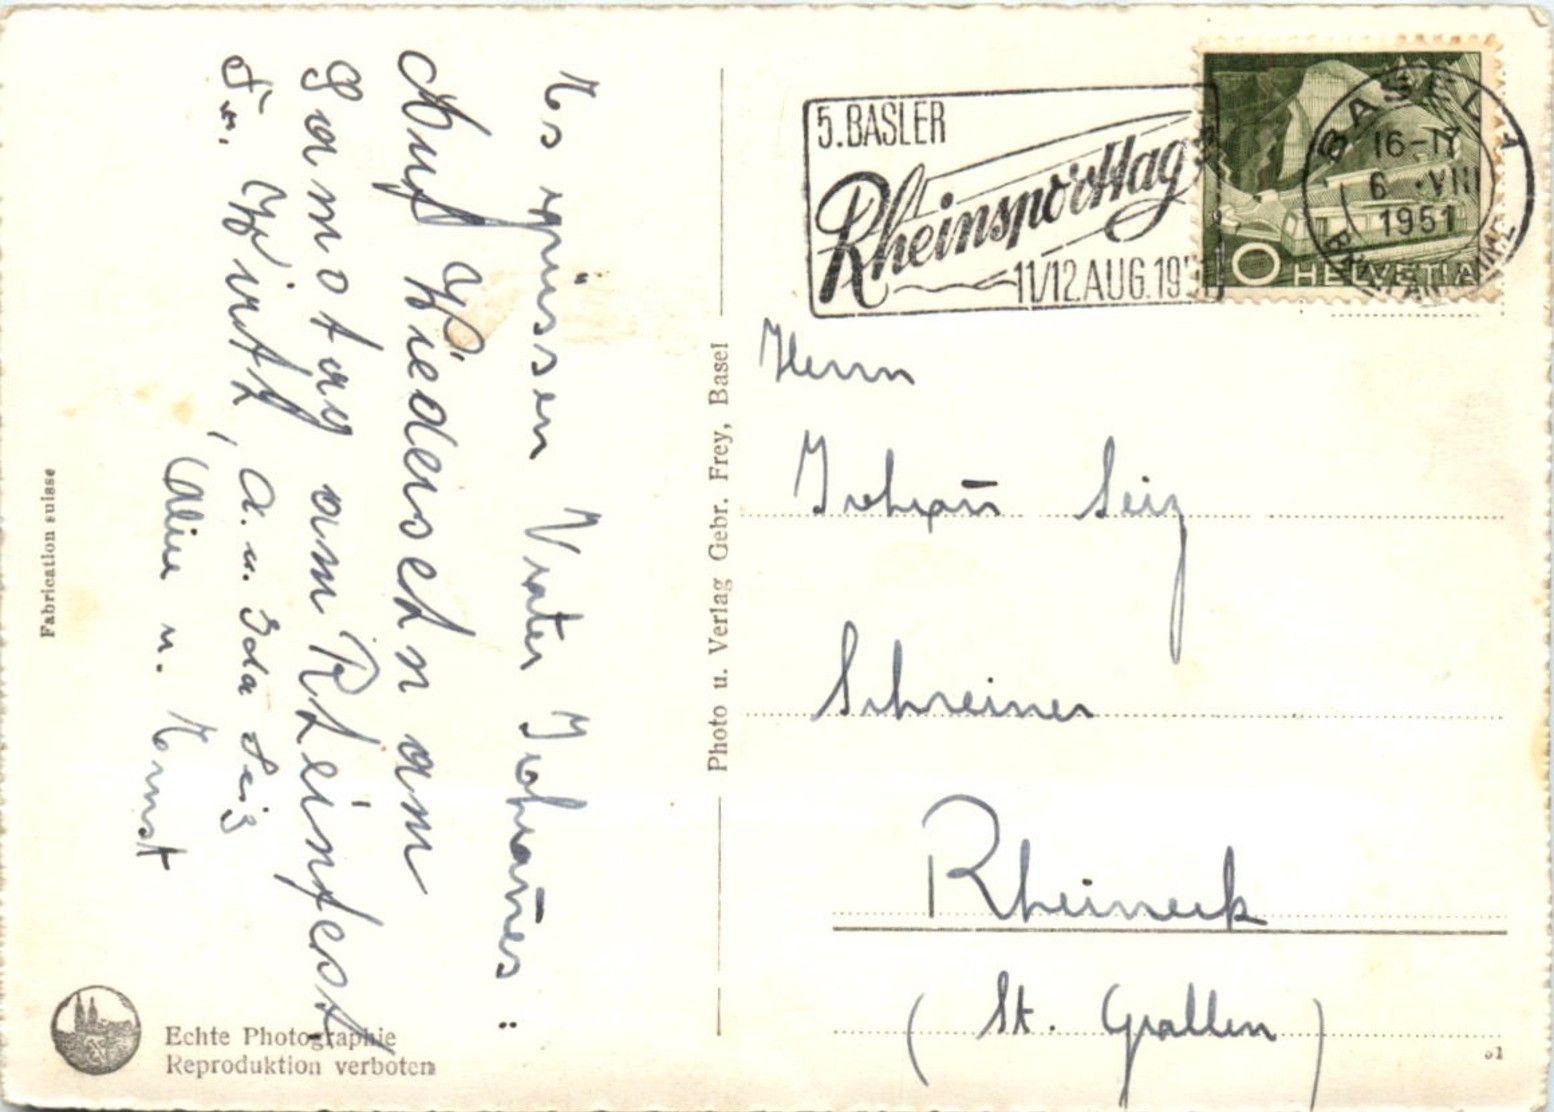 Es grüssen Vrater Johañes:
Auf Wiedersehn am
Samstag am Rheinfest
Fr. Wirth,
A. u. Ida Seiz
Aline u. Ernst
Fabrication suisse
Echte Photographie
Reproduktion verboten
Photo u. Verlag Gebr. Frey, Basel
5. BASLER
Rheinsporttag
11/12. AUG. 195
BASEL 1
16-17
6. VIII
1951
BRIEFANNAHME
10
HELVETIA
Herrn
Johañ Seiz
Schreiner
Rheineck
(St. Gallen)